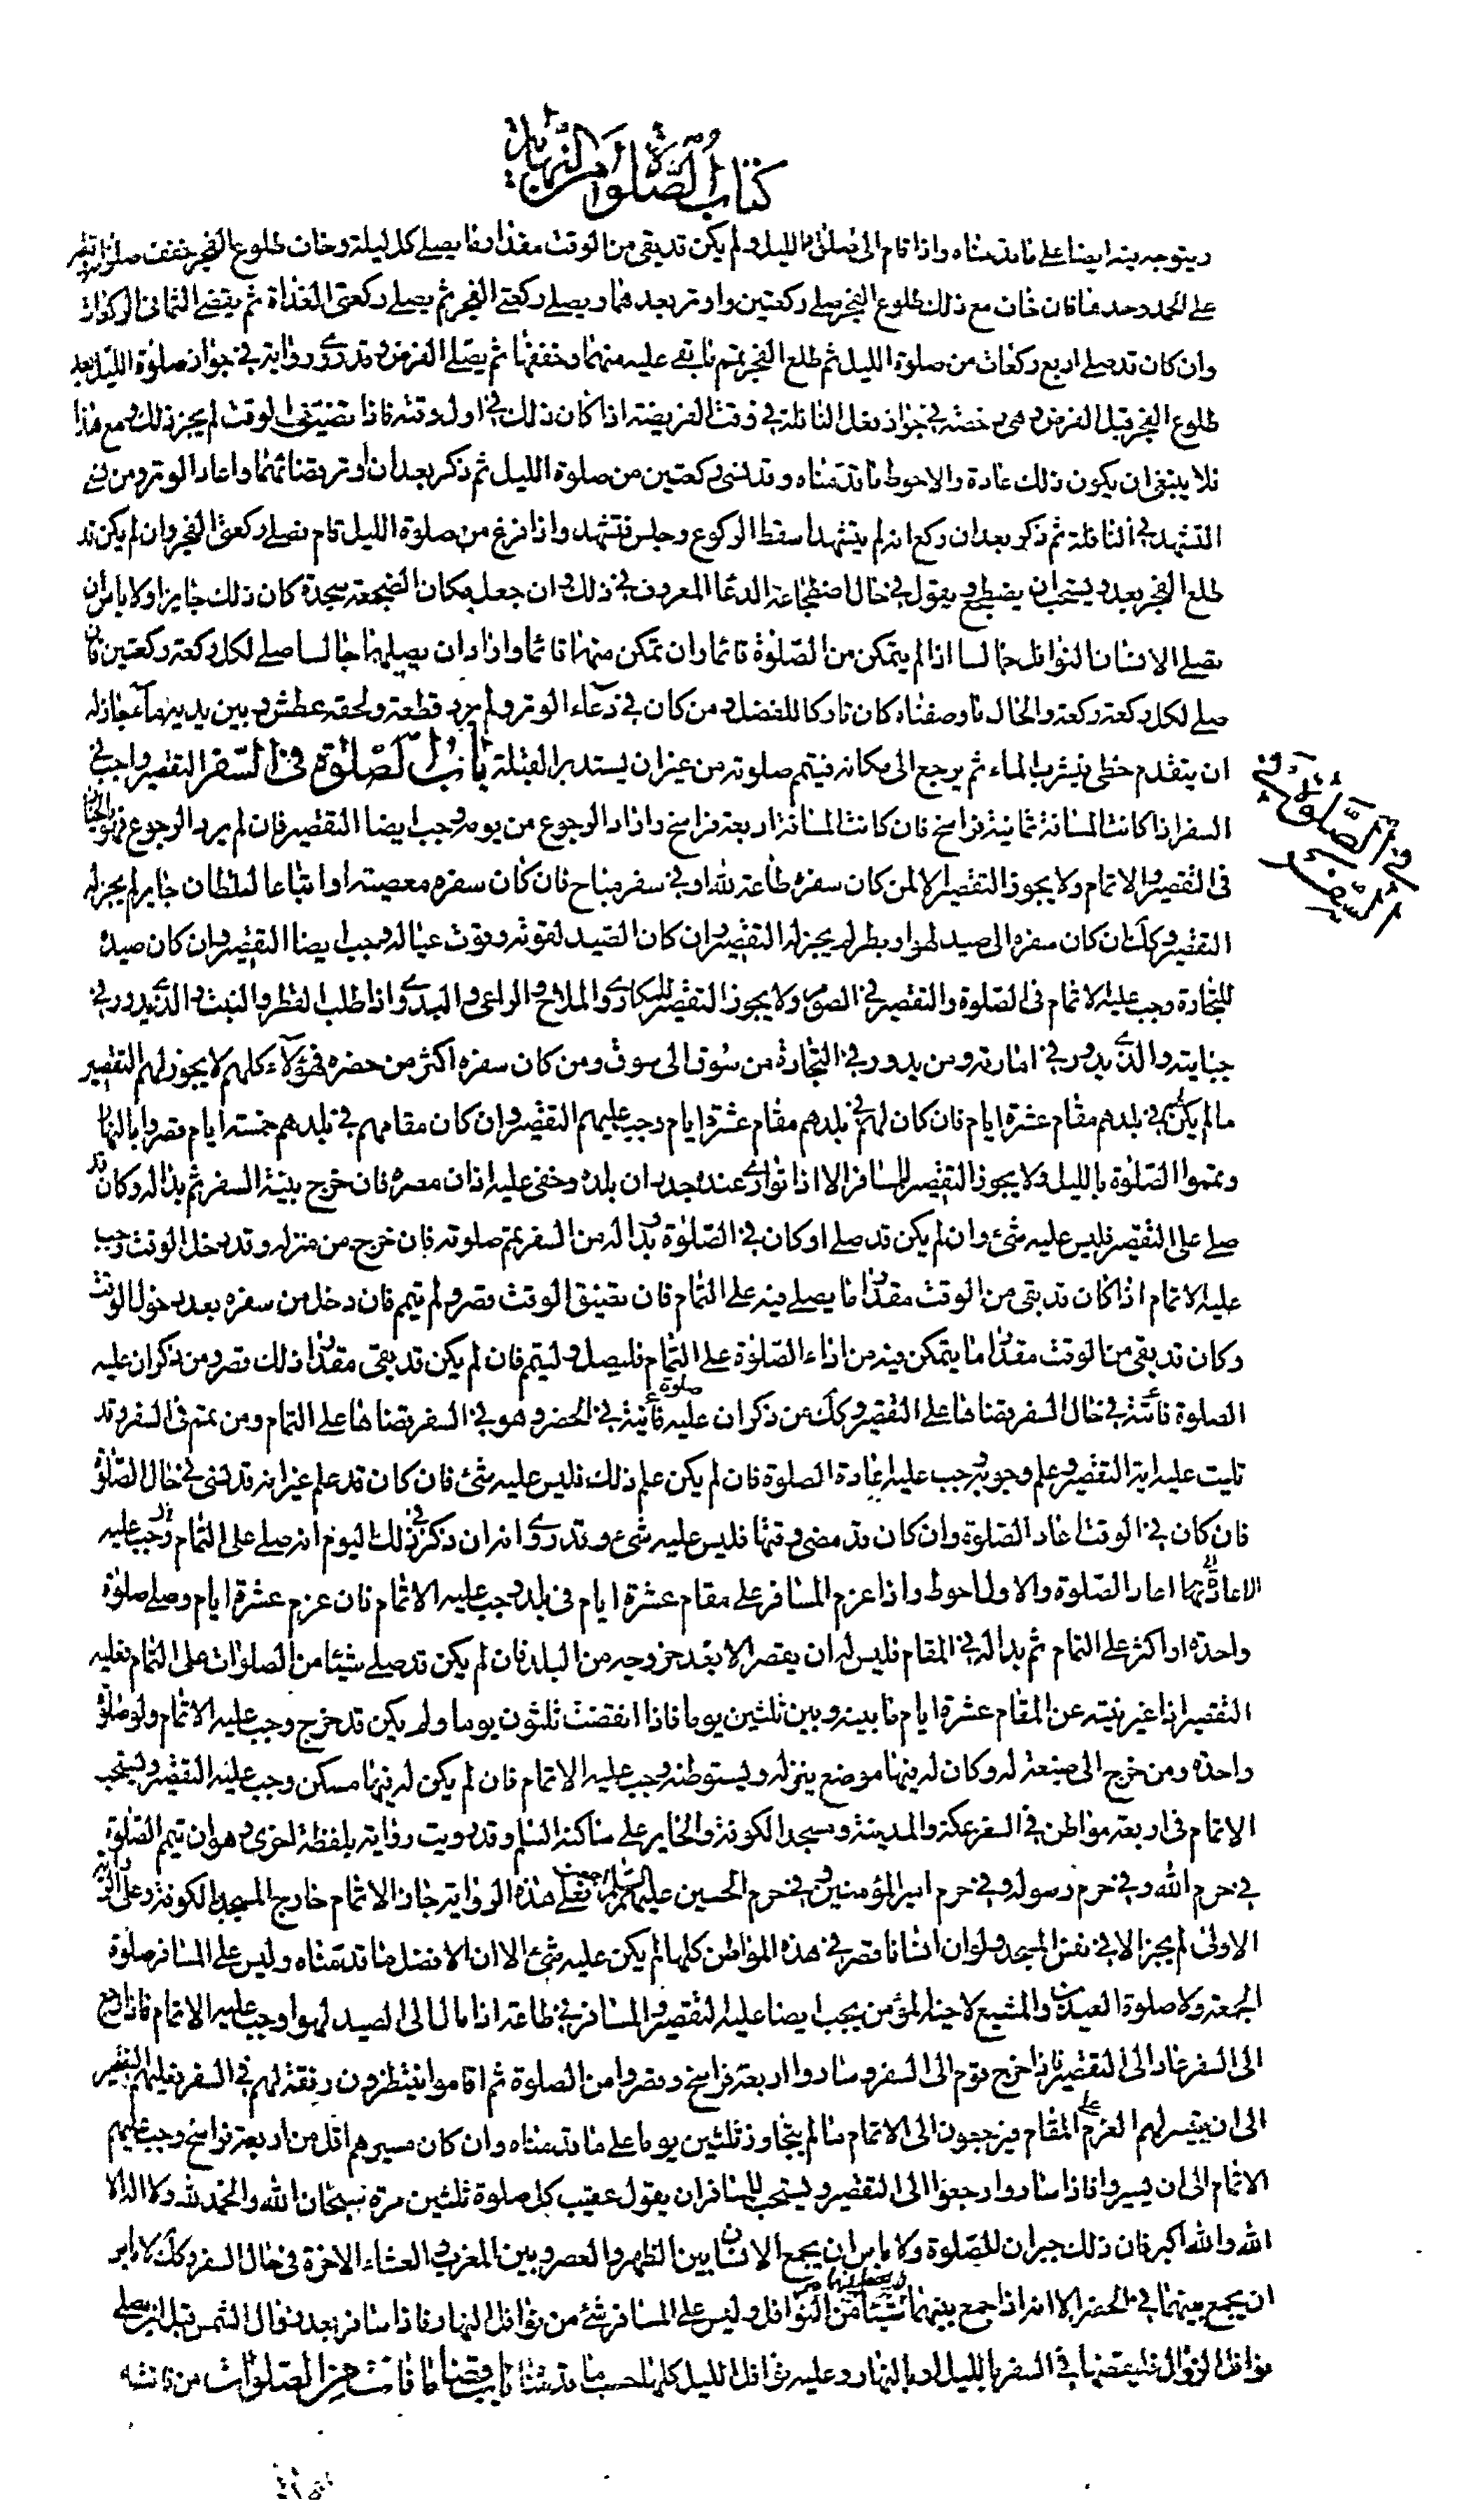 كتاب الصلوة من النهاية
ويتوجه فيه ايضا على ما قدمناه واذا قام الى صلوة الليل ولم يكن قد بقى من الوقت مقدار ما يصلى كل ليلة وخاف طلوع الفجر خفف صلوته يقتصر
على الحمد وحدها فان خاف مع ذلك طلوع الفجر صلى ركعتين واوتر بعدهما ويصلى ركعتى الفجر ثم يصلى ركعتى الغداة ثم يقضى الثمانى الركعات
وان كان قد صلى اربع ركعات من صلوة الليل ثم طلع الفجر تمم ما بقى عليه منهما وخففها ثم يصلى الفرض وقد روى رواية فى جواز صلوة الليل بعد
طلوع الفجر قبل الفرض وهى رخصة فى جواز فعل النافلة فى وقت الفريضة اذا كان ذلك فى اول وقته فاذا تضيق الوقت لم يجز ذلك ومع هذا
فلا ينبغى ان يكون ذلك عادة والاحوط ما قدمناه وقد نسى ركعتين من صلوة الليل ثم ذكر بعد ان اوتر قضائهما واعاد الوتر ومن نسى
التشهد فى النافلة ثم ذكر بعد ان ركع انه لم يتشهد اسقط الركوع وجلس فتشهد واذا فرغ من صلوة الليل قام فصلى ركعتى الفجر وان لم يكن قد
طلع الفجر بعد ويستحب ان يضطجع ويقول فى حال اضطجاعه الدعا المعروف فى ذلك وان جعل مكان الضجعة سجدة كان ذلك جايزا ولا باس ان
يصلى الانسان النوافل جالسا اذا لم يتمكن من الصلوة قائما وان تمكن منها قائما واراد ان يصليها جالسا صلى لكل ركعة ركعتين فان
صلى لكل ركعة ركعة والحال ما وصفناه كان تاركا للفضل ومن كان فى دعاء الوتر ولم يرد قطعه ولحقه عطش وبين يديه ماء جاز له
ان يتقدم خطى فيشرب الماء ثم يرجع الى مكانه فيتم صلوته من غير ان يستدبر القبلة باب الصلوة فى السفر التقصير واجب فى
السفر اذا كانت المسافة ثمانية فراسخ فان كانت المسافة اربعة فراسخ واراد الرجوع من يومه وجب ايضا التقصير فان لم يرد الرجوع فهو بالخيار
فى التقصير والاتمام ولا يجوز التقصير الا لمن كان سفره طاعة لله او فى سفر مباح فان كان سفره معصية او اتباعا لسلطان جاير لم يجز له
التقصير وكذلك ان كان سفره الى صيد لهو او بطر لم يجز له التقصير وان كان الصيد لقوته وقوت عياله وجب ايضا التقصير وان كان صيده
للتجارة وجب عليه الاتمام فى الصلوة والتقصير فى الصوم ولا يجوز التقصير للمكارى والملاح والراعى والبدوى اذا طلب القطر والنبت والذى يدور فى
جبايته والذى يدور فى امارته ومن يدور فى التجارة من سوق الى سوق ومن كان سفره اكثر من حضره فهؤلاء كلهم لا يجوز لهم التقصير
ما لم يكن فى بلدهم مقام عشرة ايام فان كان لهم فى بلدهم مقام عشرة ايام وجب عليهم التقصير وان كان مقامهم فى بلدهم خمسة ايام قصروا بالنهار
وتمموا الصلوة بالليل ولا يجوز التقصير للمسافر الا اذا توارى عنه جدران بلده وخفى عليه اذان مصره فان خرج بنية السفر ثم بدا له وكان قد
صلى على التقصير فليس عليه شئ وان لم يكن قد صلى او كان فى الصلوة وبدا له من السفر تمم صلوته فان خرج من منزله وقد دخل الوقت وجب
عليه الاتمام اذا كان قد بقى من الوقت مقدار ما يصلى فيه على التمام فان تضيق الوقت قصر ولم يتمم فان دخل من سفره بعد دخول الوقت
وكان قد بقى من الوقت مقدار ما يتمكن فيه من اداء الصلوة على التمام فليصل وليتمم فان لم يكن قد بقى مقدار ذلك قصر ومن ذكر ان عليه
الصلوة فائتة فى حال السفر قضاها على التقصير وكذلك من ذكر ان عليه صلوة فائتة فى الحضر وهو فى السفر قضاها على التمام ومن تمم فى السفر وقد
تليت عليه اية التقصير وعلم وجوبه وجب عليه اعادة الصلوة فان لم يكن علم ذلك فليس عليه شئ فان كان قد علم غير انه قد نسى فى حال الصلوة
فان كان فى الوقت اعاد الصلوة وان كان قد مضى وقتها فليس عليه شئ وقد روى انه ان ذكر فى ذلك اليوم انه صلى على التمام وجب عليه
الاعادة والاول احوط واذا عزم المسافر على مقام عشرة ايام فى بلد وجب عليه الاتمام فان عزم عشرة ايام وصلى صلوة
واحدة او اكثر على التمام ثم بدا له فى المقام فليس له ان يقصر الا بعد خروجه من البلد فان لم يكن قد صلى شيئا من الصلوات على التمام فعليه
التقصير اذا غير نيته عن المقام عشرة ايام ما بينه وبين ثلثين يوما فاذا انقضت ثلثون يوما ولم يكن قد خرج وجب عليه الاتمام ولو صلوة
واحدة ومن خرج الى ضيعة له وكان له فيها موضع ينزله ويستوطنه وجب عليه الاتمام فان لم يكن له فيها مسكن وجب عليه التقصير ويستحب
الاتمام فى اربعة مواطن فى السفر بمكة والمدينة ومسجد الكوفة والحاير على ساكنه السلم وقد رويت رواية بلفظة اخرى وهو ان يتمم الصلوة
فى حرم الله وفى حرم رسوله وفى حرم امير المؤمنين وفى حرم الحسين عليهم السلم اجمعين فعلى هذه الرواية جاز الاتمام خارج المسجد بالكوفة وعلى الرواية
الاولى لم يجز الا فى نفس المسجد ولو ان انسانا قصر فى هذه المواطن كلها لم يكن عليه شئ الا ان الافضل ما قدمناه وليس على المسافر صلوة
الجمعة ولا صلوة العيدين والمشيع لاخيه المؤمن يجب ايضا عليه التقصير والمسافر فى طاعة اذا مال الى الصيد لهوا وجب عليه الاتمام فاذا رجع
الى السفر عاد الى التقصير واذا خرج قوم الى السفر وساروا اربعة فراسخ وقصروا من الصلوة ثم اقاموا ينتظرون رفقة لهم فى السفر فعليهم التقصير
الى ان يتيسر لهم العزم على المقام فيرجعون الى الاتمام ما لم يتجاوز ثلثين يوما على ما قدمناه وان كان مسيرهم اقل من اربعة فراسخ وجب عليهم
الاتمام الى ان يسيروا فاذا ساروا رجعوا الى التقصير ويستحب للمسافر ان يقول عقيب كل صلوة ثلثين مرة سبحان الله والحمد لله ولا اله الا
الله والله اكبر فان ذلك جبران للصلوة ولا باس ان يجمع الانسان بين الظهر والعصر وبين المغرب والعشاء الاخرة فى حال السفر وكذلك لا باس
ان يجمع بينهما فى الحضر الا انه اذا جمع بينهما شيئا من النوافل وليس على المسافر شئ من نوافل النهار فاذا سافر بعد زوال الشمس قبل ان يصلى
نوافل الزوال فليقضها فى السفر بالليل او بالنهار وعليه نوافل الليل كلها حسب ما قدمناه باب قضاء ما فات من الصلوات من فاتته
فى الصلوة فى
السفر